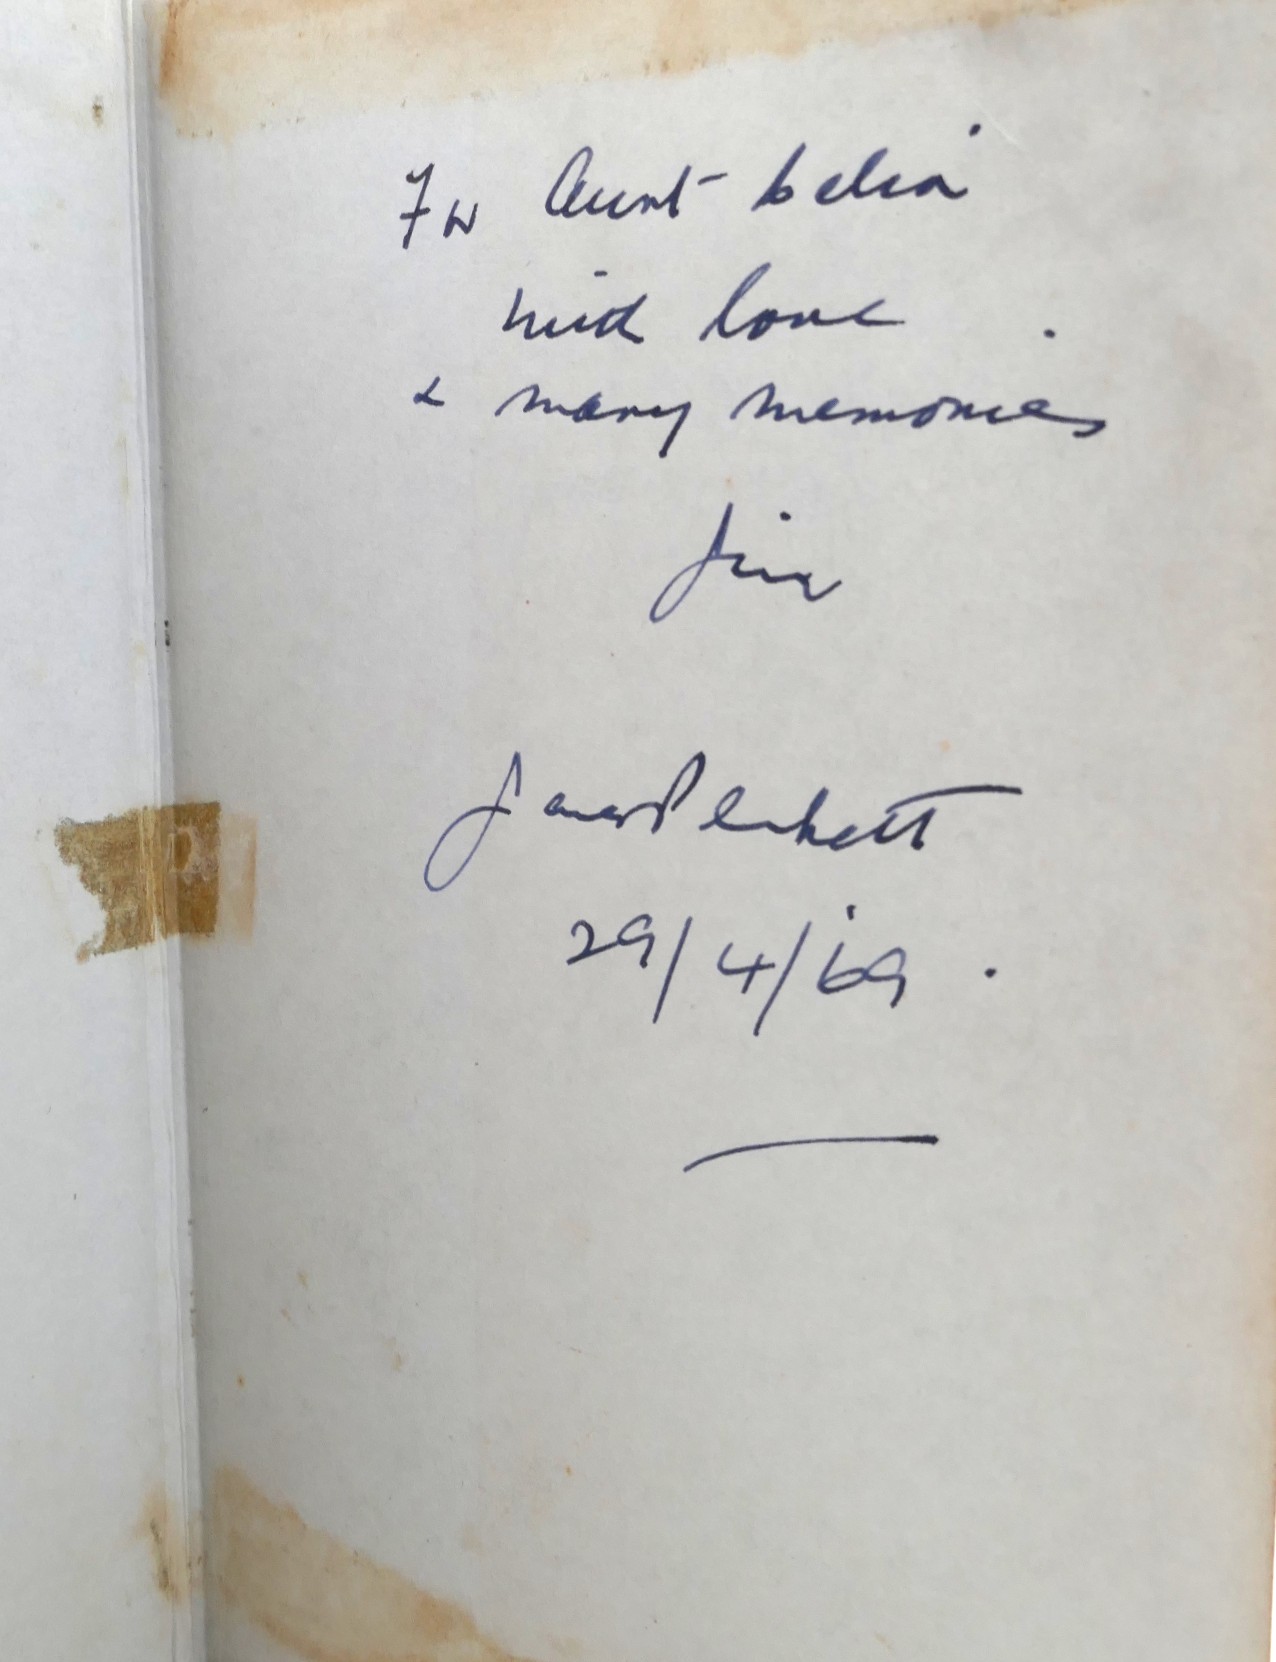 For Aunt Delia
with love
& many memories
Jim
James Plunkett
29/4/69.